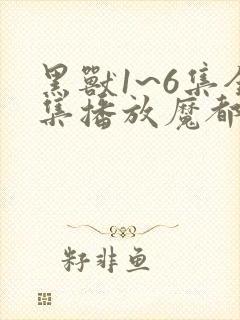 黑獸1~6集全
集播放魔都
籽非鱼